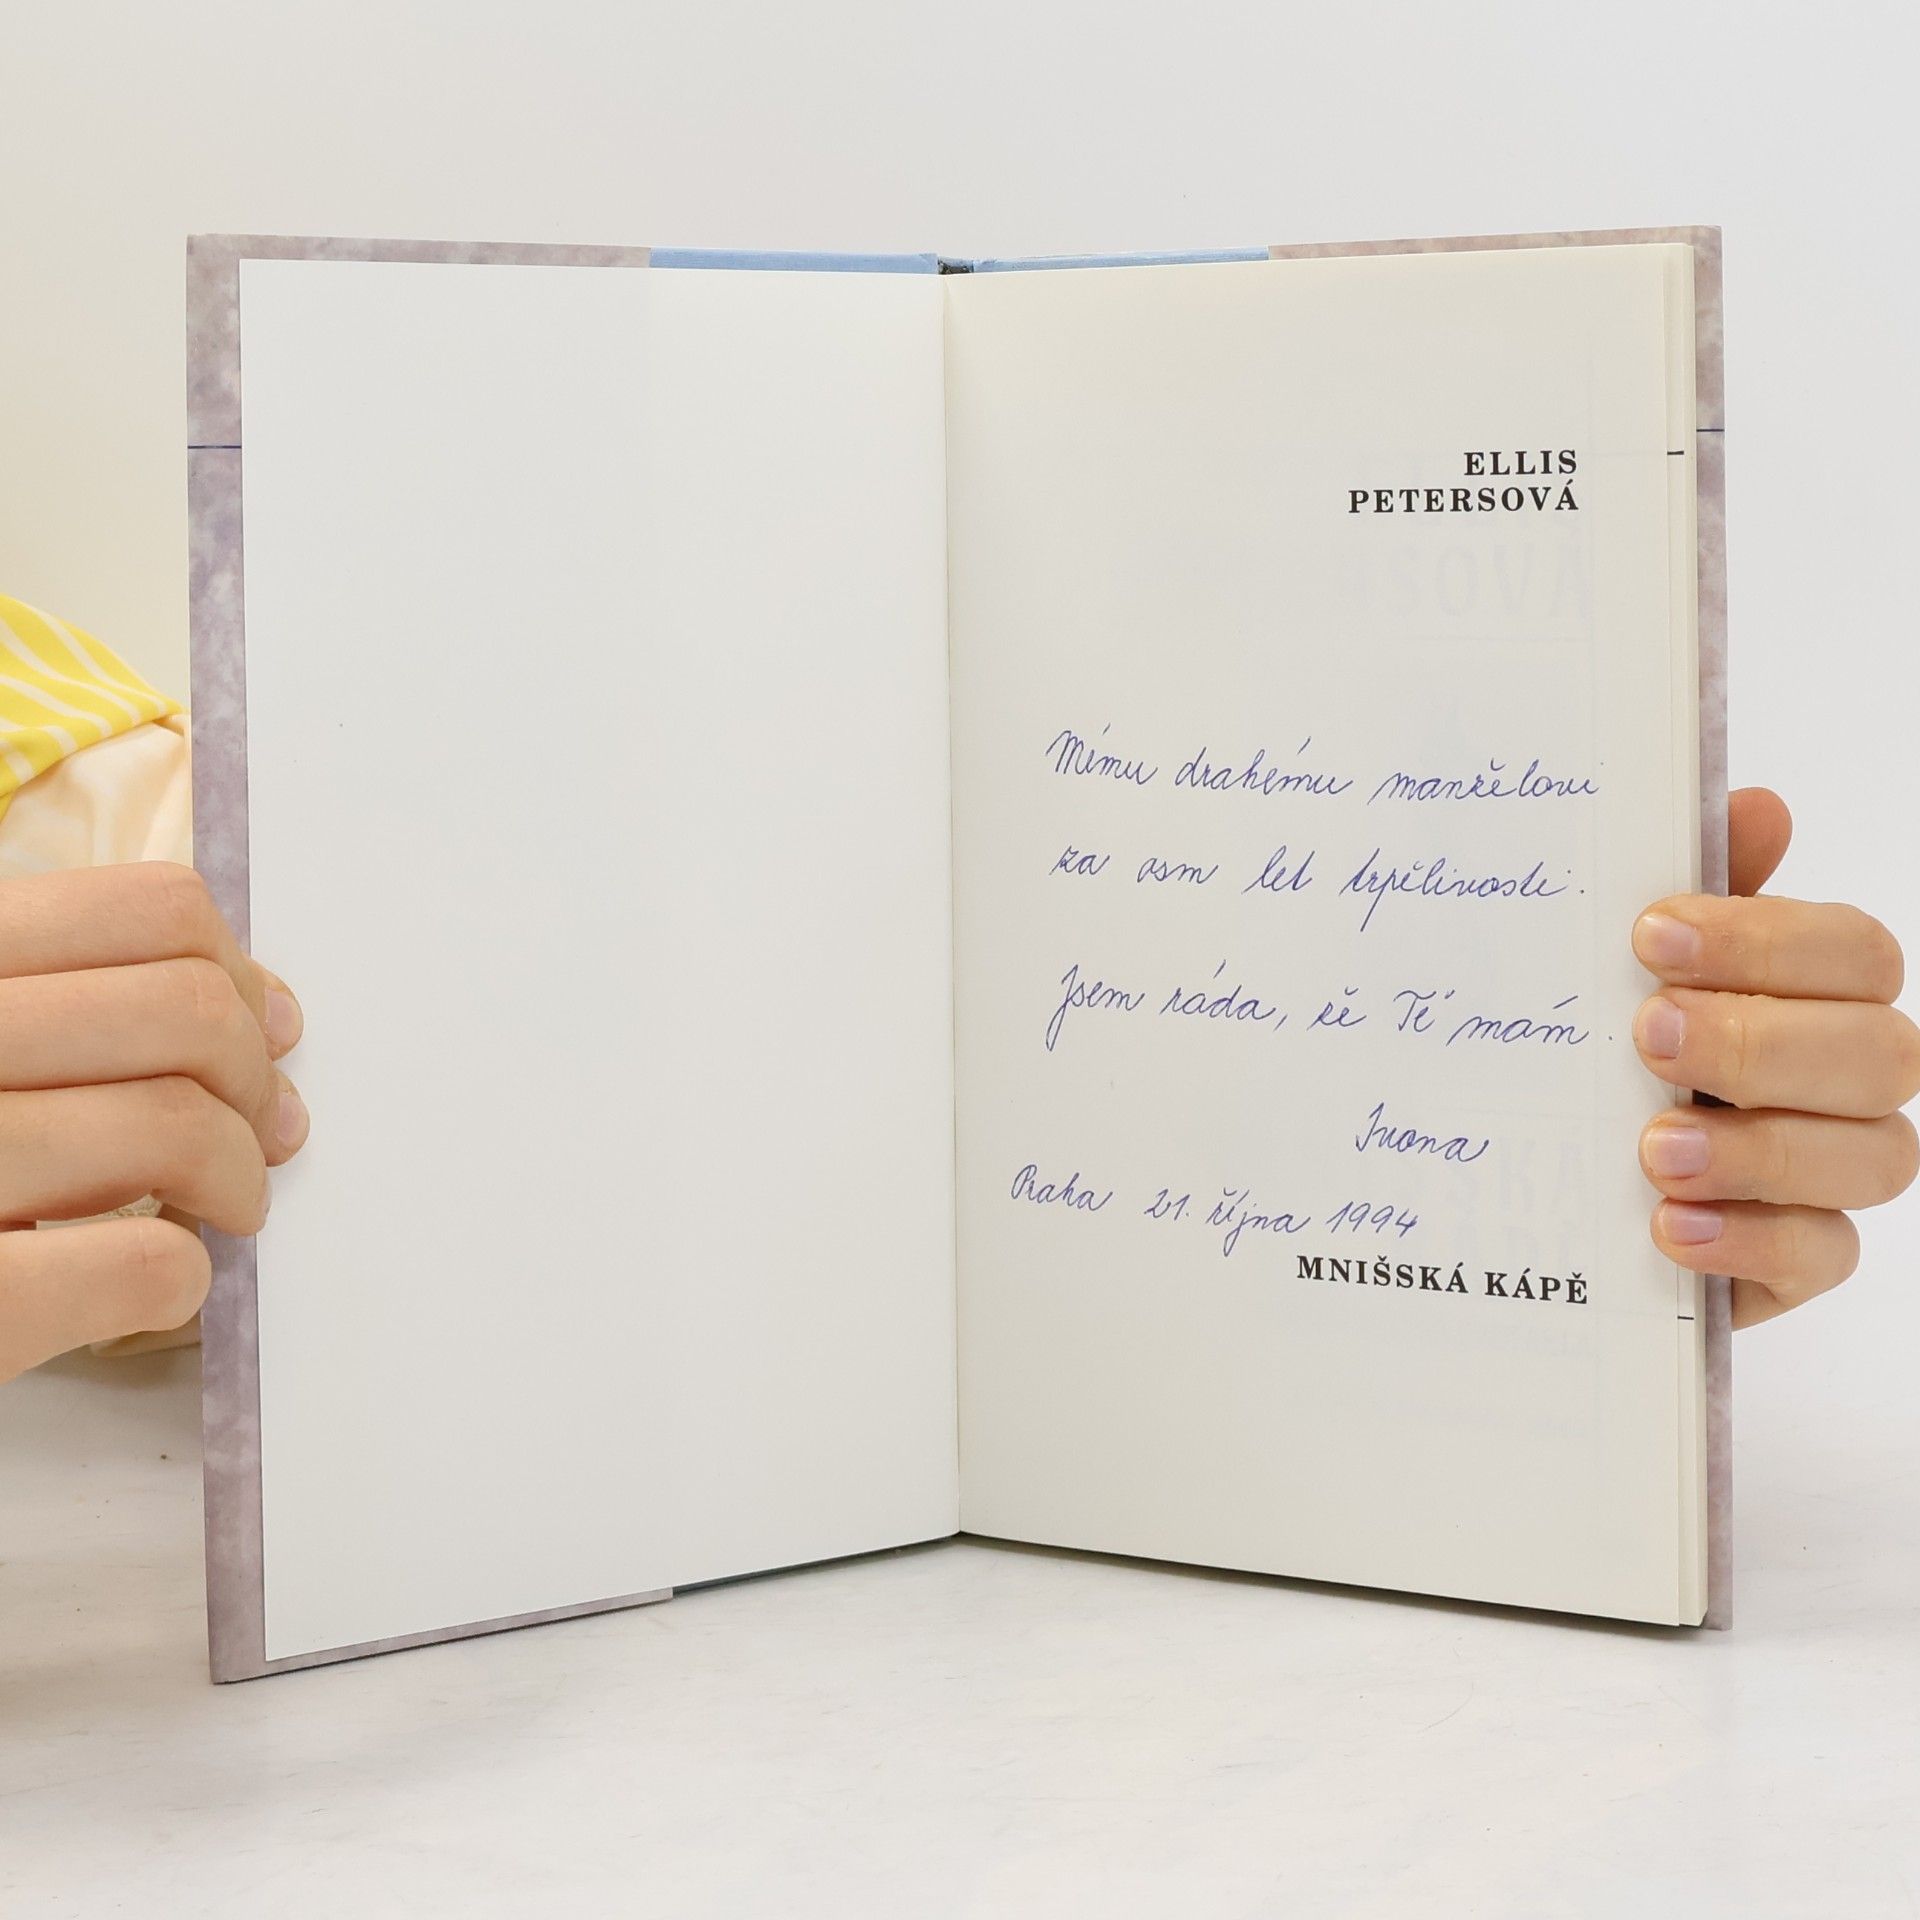 ELLIS
PETERSOVÁ
Mému drahému manželovi
za osm let trpělivosti.
Jsem ráda, že Tě mám.
Ivona
Praha 21. října 1994
MNIŠSKÁ KÁPĚ